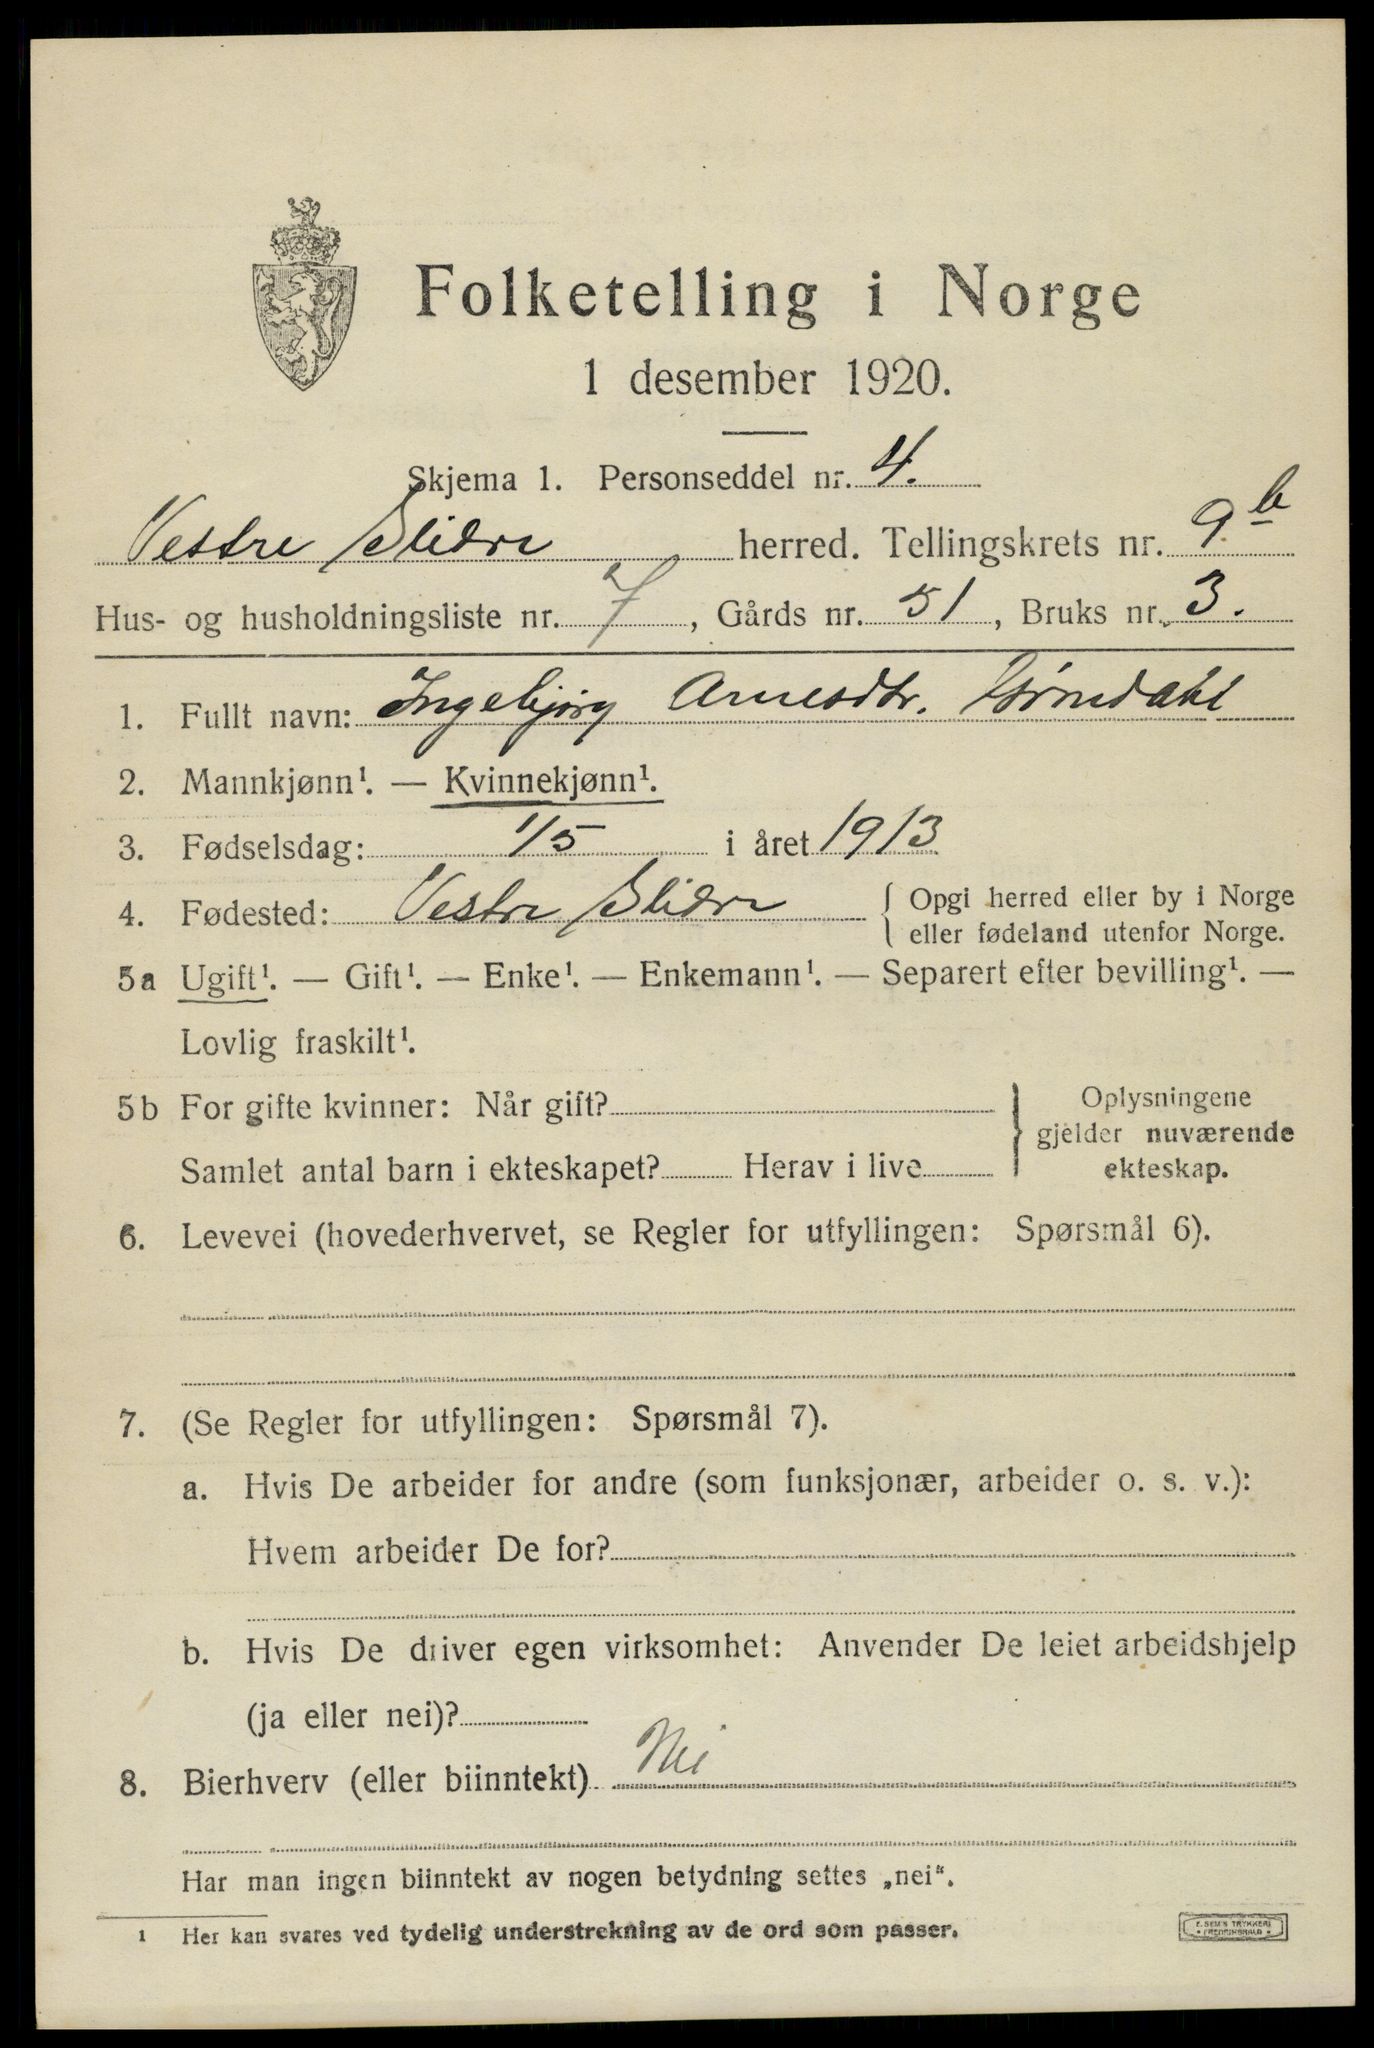 Folketelling i Norge
1 desember 1920.
Skjema 1. Personseddel nr. 4.
Vestre Slidre herred. Tellingskrets nr. 9b
Hus- og husholdningsliste nr. 7, Gårds nr. 51, Bruks nr. 3.
1. Fullt navn: Ingebjørg Arnesdtr.
2. Mannkjønn¹. — Kvinnekjønn¹.
3. Fødselsdag: 1/5 i året 1913
4. Fødested: Vestre Slidre { Opgi herred eller by i Norge
eller fødeland utenfor Norge.
5a Ugift¹. — Gift¹. — Enke¹. — Enkemann¹. — Separert efter bevilling¹. —
Lovlig fraskilt¹.
5b For gifte kvinner: Når gift? } Oplysningene
gjelder nuværende
Samlet antal barn i ekteskapet? Herav i live
ekteskap.
6. Levevei (hovederhvervet, se Regler for utfyllingen: Spørsmål 6).
7. (Se Regler for utfyllingen: Spørsmål 7).
a. Hvis De arbeider for andre (som funksjonær, arbeider o. s. v.):
Hvem arbeider De for?
b. Hvis De driver egen virksomhet: Anvender De leiet arbeidshjelp
(ja eller nei)?
8. Bierhverv (eller biinntekt) Nei
Har man ingen biinntekt av nogen betydning settes „nei“.
1 Her kan svares ved tydelig understrekning av de ord som passer.
E. SEM'S TRYKKERI
• FREDRIKSHALD •